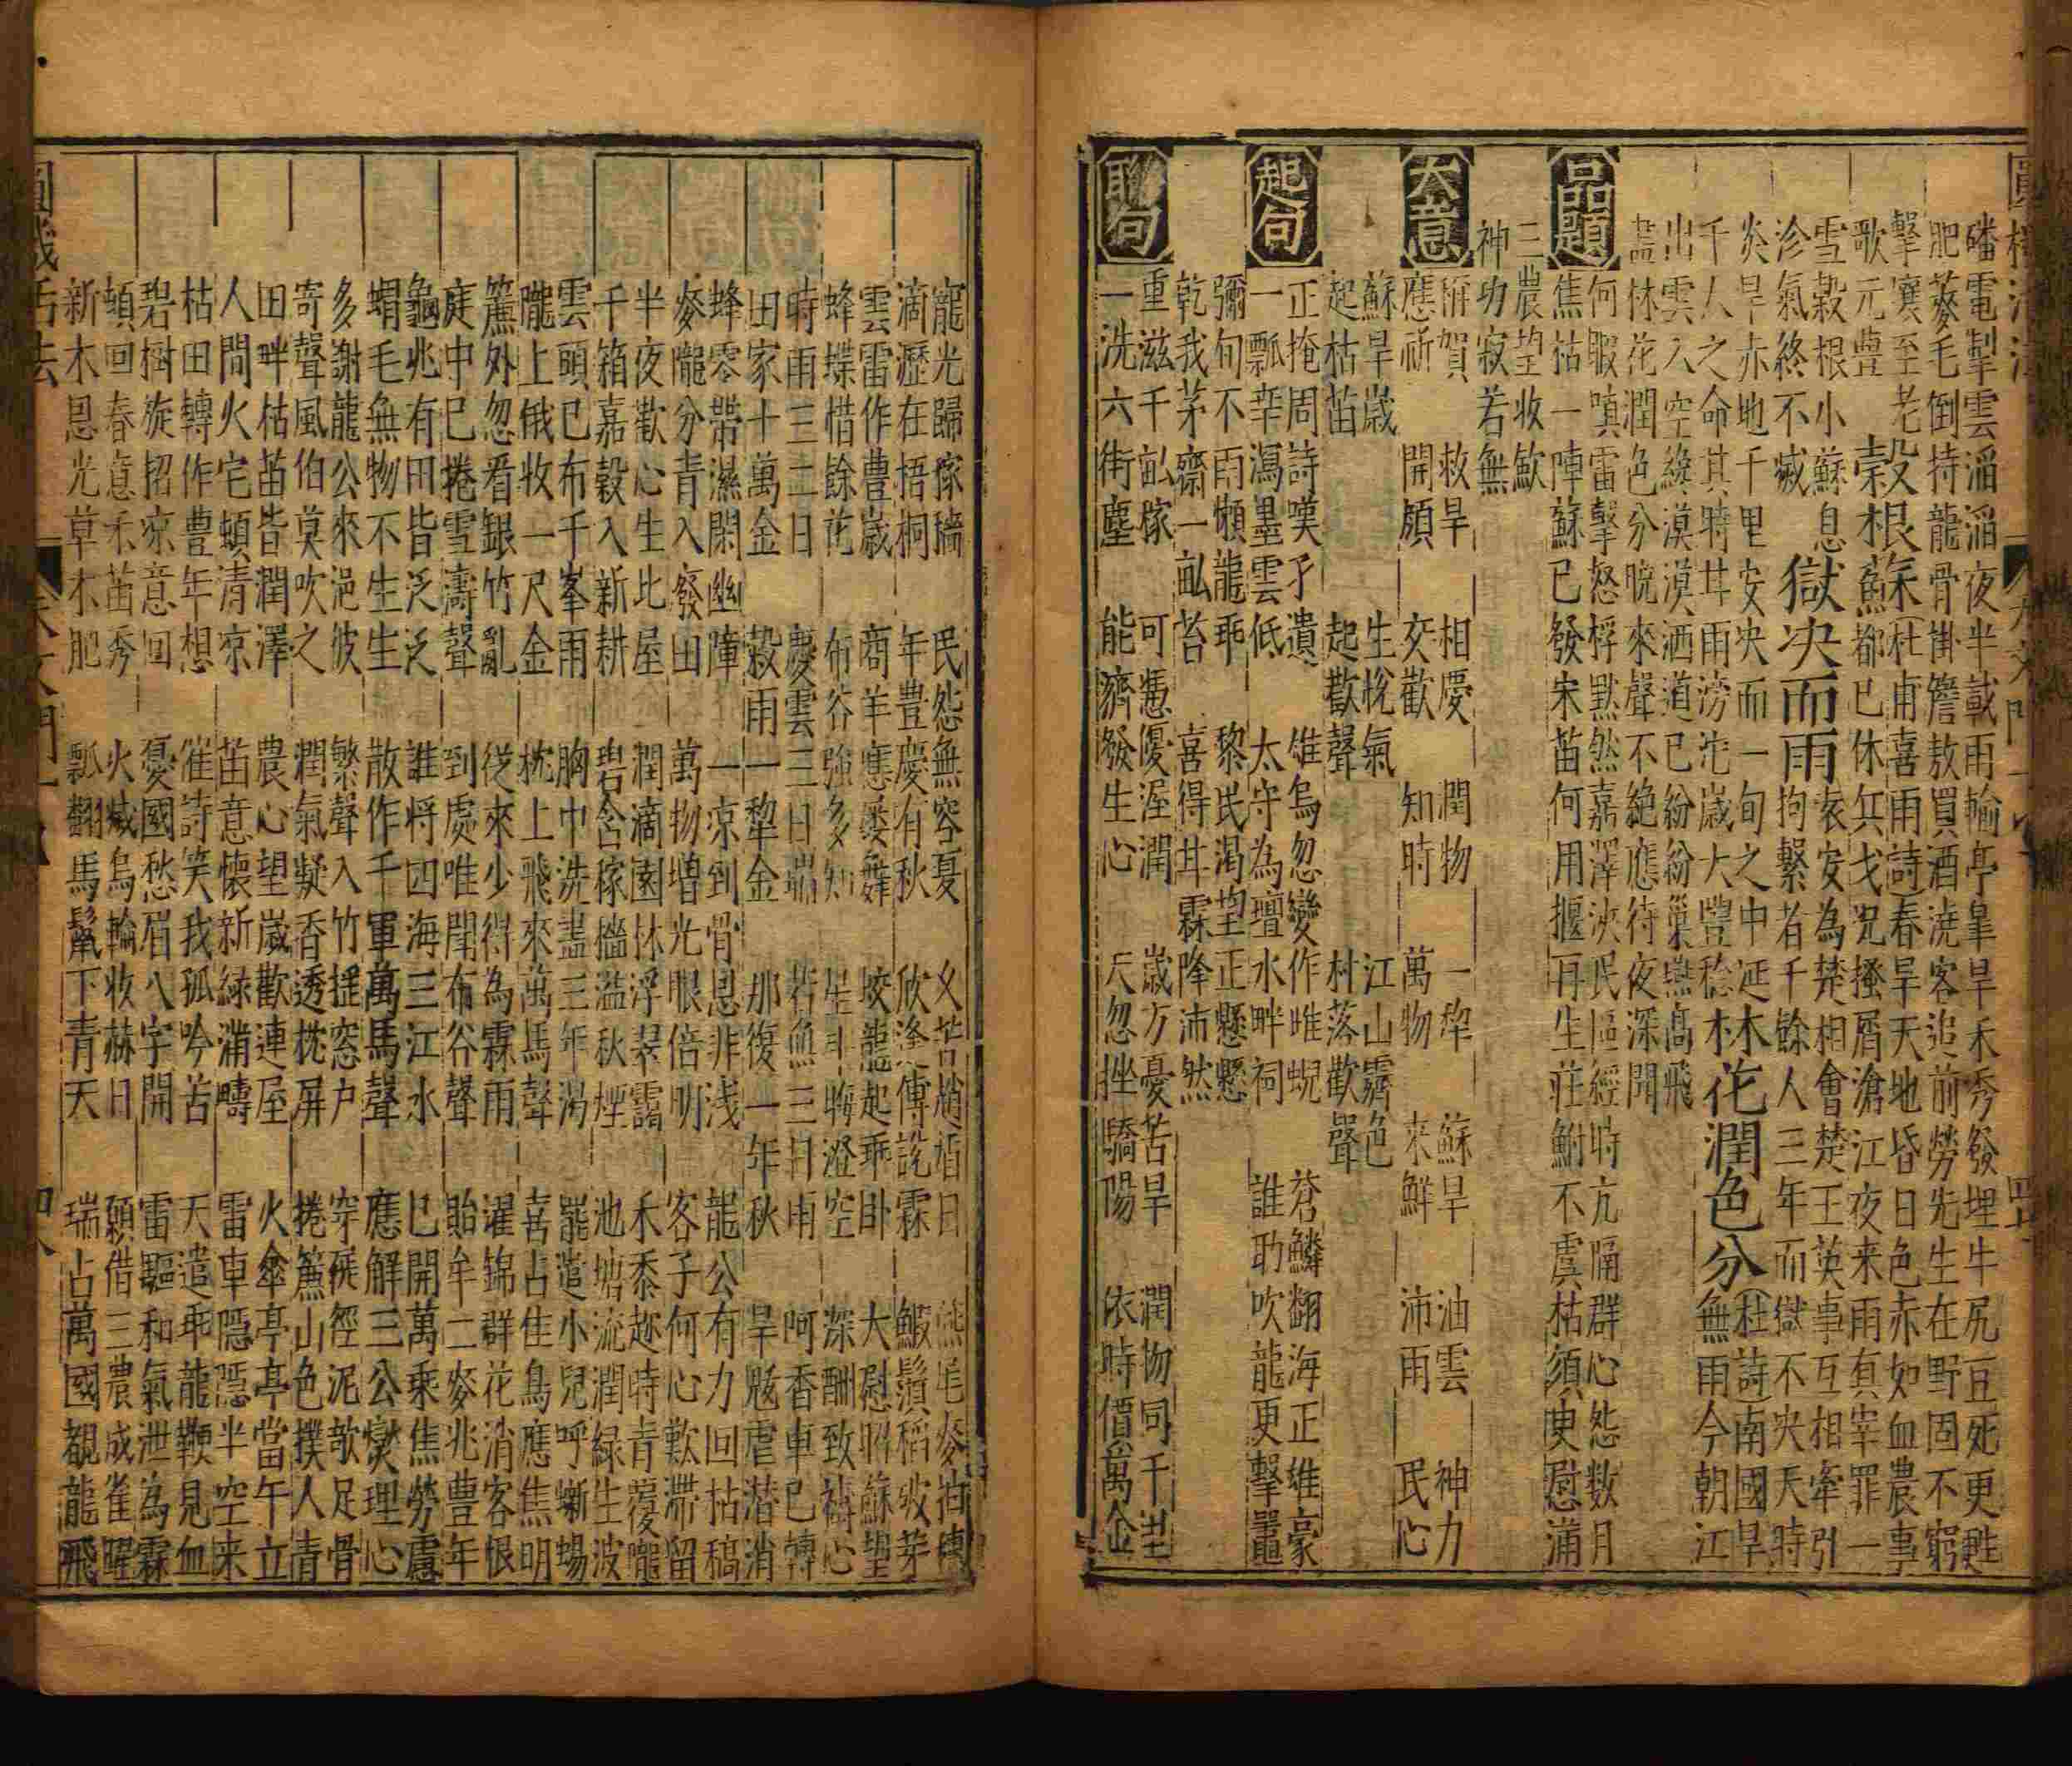 磻電掣雲滔滔夜半載雨輸亭皐旱禾秀發埋牛尻豆死更甦
肥麥毛倒持龍骨掛簷敖買酒澆客追前勞先生在野固不窮
擊壤至老
歌元豊
穀根蘇
杜甫喜雨詩春旱天地昏日色赤如血農事
都已休兵戈況搔屑滄江夜来雨真宰罪一
雪穀根小蘇息
沴氣終不滅
獄决而雨
表安為楚相會楚王英事互相牽引
拘繫者千餘人三年而獄不决天時
炎旱赤地千里安决而一旬之中延
千人之命其時甘雨滂沱歲大豐稔
木花潤色分
(杜詩)南國旱
無雨今朝江
出雲入空纔漠漠洒道已紛紛巢燕高飛
盡林花潤色分晩來聲不絶應待夜深聞
品題
何暇嗔雷擊怒桴默然嘉澤浹民區經時亢隔群心怨数月
焦枯一陣蘇已發宋苗何用揠再生莊鮒不虞枯須臾慰滿
三農望收欤
神功寂若無
大意
閑賀 救旱 相慶 潤物 一犂 蘇旱 油雲 神力
應祈 開顔 交歡 知時 萬物 来鮮 沛雨 民心
蘇旱歲 生梲氣 江山霽色
起枯苗 起歡聲 村落歡聲
起句
正掩周詩嘆孑遺 雄烏忽變作雌蜺 蒼鱗翻海正雄豪
一瓢辛瀉墨雲低 太守為壇水畔祠 誰助吹龍更擊鼉
彌旬不雨懶龍乖 黎民渇望正懸懸
乾我茅齋一畝苔 喜得甘霖降沛然
聯句
重滋千畝稼 可慿優渥潤 歲方憂苦旱 潤物同千里
一洗六街塵 能濟發生心 天忽挫驕陽 依時價萬金
寵光歸稼穡 民怨無容憂 乂苦趙盾日 燕尾麥抽穗
滴瀝在梧桐 年豊慶有秋 欣逢傅說霖 鰕鬚稻破芽
雲雷作豊歲 商羊應屢舞 蛟龍起乖卧 大慰昭蘇望
蜂蝶惜餘花 布谷強多知 星斗晦澄空 深酬致禱心
時雨三二日 慶雲三日端 若無三日雨 呵香車已轉
田家十萬金 穀雨一犂金 那復一年秋 旱魃虐潜消
蜂零帶濕閑幽障 一凉到骨恩非浅 龍公有力回枯稿
麥隴分青入廢田 萬物増光眼倍明 客子何心歎滯留
半夜歡心生比屋 潤滴園林浮翠靄 禾黍趂時青覆隴
千箱嘉穀入新耕 碧含稼穡溢秋煙 池塘流潤緑生波
雲頭已布千峯雨 胸中洗盡三年渴 罷遣小兒呼蜥蜴
隴上俄收一尺金 枕上飛來萬馬聲 喜占佳鳥應焦明
簾外忽看銀竹亂 從來少得為霖雨 濯錦群花消客恨
庭中已捲雪濤聲 到處唯聞布谷聲 貽牟二麥兆豊年
龜兆有田皆泛泛 誰將四海三江水 已開萬乘焦勞慮
蝟毛無物不生生 散作千軍萬馬聲 應解三公爕理心
多謝龍公來浥彼 繁聲入竹搖窓户 穿徑泥欹足骨
寄聲風伯莫吹之 潤氣凝香透枕屏 捲簾山色撲人青
田畔枯苗皆潤澤 農心望歲歡連屋 火傘亭亭當午立
人間火宅頓清凉 苗意懷新緑滿疇 雷車隱隱半空来
枯田轉作豊年想 催詩笑我孤吟苦 天遣乖龍鞭見血
碧樹旋招凉意回 憂國愁眉八字開 雷驅和氣泄為霖
頓回春意禾苗秀 火烕烏輪收赫日 願借三農成雀躍
新木恩光草木肥 瓢翻馬鬣下青天 瑞占萬國覩龍飛